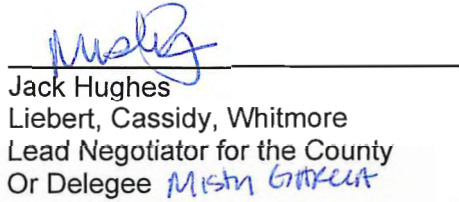 Jack Hughes
Liebert, Cassidy, Whitmore
Lead Negotiator for the County
Or Delegee Misty Garcia